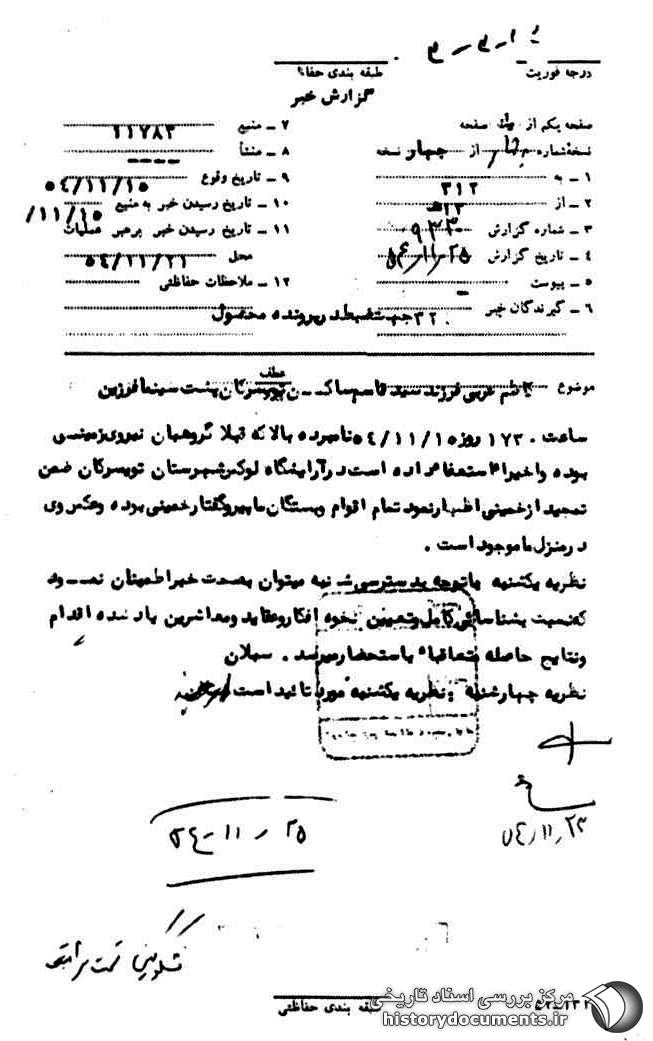 درجه فوریت
طبقه بندی حفاظتی
گزارش خبر
صفحه یکم از یک صفحه
نسخه شماره چهار از چهار نسخه
۱ - به ۳۱۲
۲ - از ۲۳ هـ
۳ - شماره گزارش
۴ - تاریخ گزارش ۵۴/۱۱/۲۵
۵ - پیوست -
۶ - گیرندگان خبر
۷ - منبع ۱۱۷۸۳
۸ - منشأ ----
۹ - تاریخ وقوع ۵۴/۱۱/۱۵
۱۰ - تاریخ رسیدن خبر به منبع /۱۱/۱۵
۱۱ - تاریخ رسیدن خبر برهبر عملیات
محل ۵۴/۱۱/۲۱
۱۲ - ملاحظات حفاظتی
۳۲۰ جهت ضبط در پرونده محصول
موضوع کاظم عربی فرزند سید قاسم ساکن تویسرکان پشت سینما فرزین
عطف
ساعت ۱۷۳۰ روز ۵۴/۱۱/۱۵ نامبرده بالا که قبلا گروهبان نیروی زمینی
بوده و اخیرا استعفا داده است در آرایشگاه لوکس شهرستان تویسرکان ضمن
تمجید از خمینی اظهار نمود تمام اقوام و بستگان ما پیرو گفتار خمینی بوده و عکس وی
در منزل ما موجود است .
نظریه یکشنبه باتوجه بدسترسی شنبه میتوان بصحت خبر اطمینان نمود
که نسبت بشناسائی کامل و تعیین نحوه افکار و عقاید و معاشرین یاد شده اقدام
و نتایج حاصله متعاقبا باستحضار میرسد . سبلان
نظریه چهارشنبه نظریه یکشنبه مورد تائید است
۵۴/۱۱/۲۳
۵۴-۱۱-۲۵
طبقه بندی حفاظتی
مرکز بررسی اسناد تاریخی
historydocuments.ir